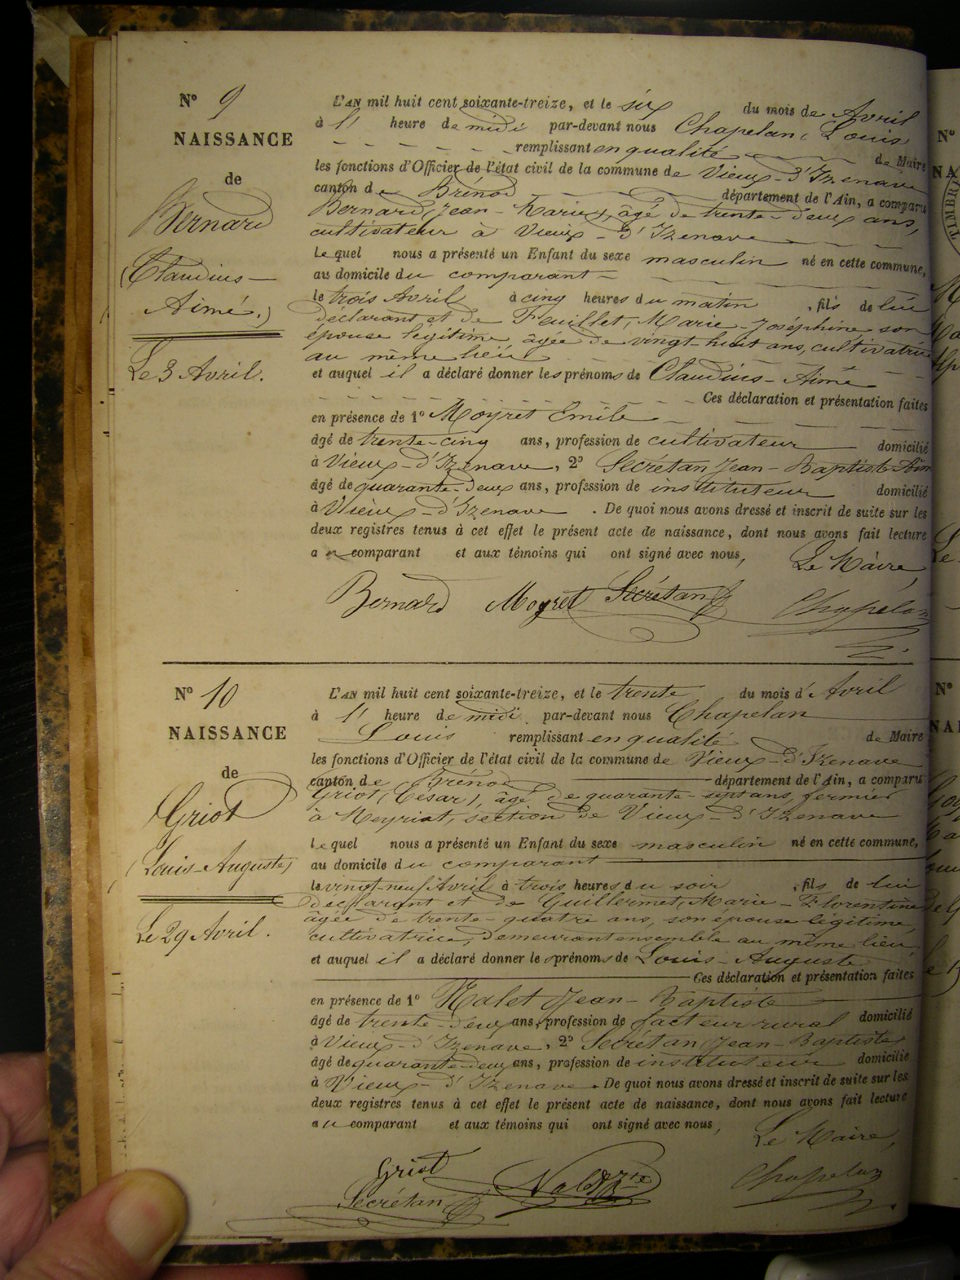 N° 9
NAISSANCE
de
Bernard
(Claudius-
Aimé.)
Le 3 Avril.
L'AN mil huit cent soixante-treize, et le six du mois de Avril
à 1 heure de midi par-devant nous Chapelan, Louis
remplissant en qualité de Maire
les fonctions d'Officier de l'état civil de la commune de Vieux-d'Izenave
canton de Brénod département de l'Ain, a comparu
Bernard, Jean-Marie, âgé de trente-deux ans,
cultivateur à Vieux-d'Izenave
Lequel nous a présenté un Enfant du sexe masculin né en cette commune,
au domicile du comparant
le trois Avril à cinq heures du matin, fils de lui
déclarant et de Feuillet, Marie-Joséphine son
épouse légitime, âgée de vingt huit ans, cultivatrice
au même lieu
et auquel il a déclaré donner les prénoms de Claudius-Aimé
Ces déclaration et présentation faites
en présence de 1° Moyret Emile
âgé de trente-cinq ans, profession de cultivateur domicilié
à Vieux-d'Izenave, 2° Secrétan Jean-Baptiste
âgé de quarante-deux ans, profession de instituteur domicilié
à Vieux-d'Izenave. De quoi nous avons dressé et inscrit de suite sur les
deux registres tenus à cet effet le présent acte de naissance, dont nous avons fait lecture
au comparant et aux témoins qui ont signé avec nous, Le Maire,
Bernard Moyret Secrétan Chapelan
N° 10
NAISSANCE
de
Griot
(Louis-Auguste)
Le 29 Avril.
L'AN mil huit cent soixante-treize, et le trente du mois d'Avril
à 1 heure de midi par-devant nous Chapelan
Louis remplissant en qualité de Maire
les fonctions d'Officier de l'état civil de la commune de Vieux-d'Izenave
canton de Brénod département de l'Ain, a comparu
Griot, (César), âgé de quarante-sept ans, fermier
à Meyriat, section de Vieux-d'Izenave
Lequel nous a présenté un Enfant du sexe masculin né en cette commune,
au domicile du comparant
le vingt-neuf Avril à trois heures du soir, fils de lui
déclarant et de Guillermet, Marie-Florentine
âgée de trente-quatre ans, son épouse légitime,
cultivatrice, demeurant ensemble au même lieu
et auquel il a déclaré donner les prénoms de Louis-Auguste
Ces déclaration et présentation faites
en présence de 1° Nalet Jean-Baptiste
âgé de trente-deux ans, profession de facteur rural domicilié
à Vieux-d'Izenave, 2° Secrétan Jean-Baptiste
âgé de quarante-deux ans, profession de instituteur domicilié
à Vieux-d'Izenave. De quoi nous avons dressé et inscrit de suite sur les
deux registres tenus à cet effet le présent acte de naissance, dont nous avons fait lecture
au comparant et aux témoins qui ont signé avec nous, Le Maire,
Griot Chapelan
Secrétan